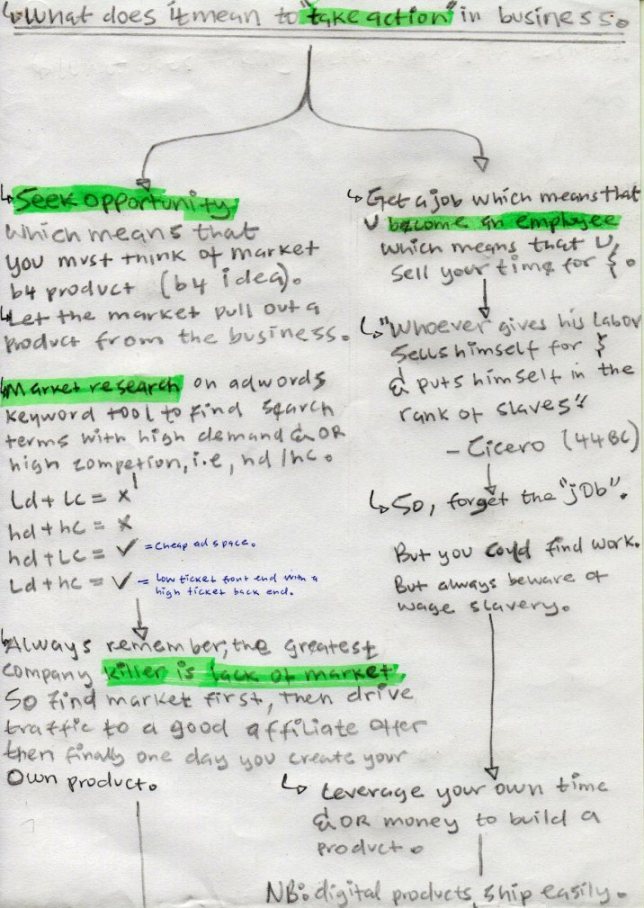 What does it mean to "take action" in business.
Seek opportunity
which means that
you must think of market
b4 product (b4 idea).
Let the market pull out a
product from the business.
Market research on adwords
keyword tool to find search
terms with high demand & OR
high competion, i.e, hd/hc.
Ld + Lc = x
hd + hc = x
hd + Lc = ✓ = cheap ad space.
Ld + hc = ✓ = low ticket front end with a
high ticket back end.
Always remember, the greatest
company killer is lack of market.
So find market first, then drive
traffic to a good affiliate offer
then finally one day you create your
own product.
Get a job which means that
U become an employee
which means that U
sell your time for $.
"Whoever gives his labor
sells himself for $
& puts himself in the
rank of slaves"
- Cicero (44BC)
So, forget the "jOb".
But you could find work.
But always beware of
wage slavery.
Leverage your own time
& OR money to build a
product.
NB: digital products ship easily.